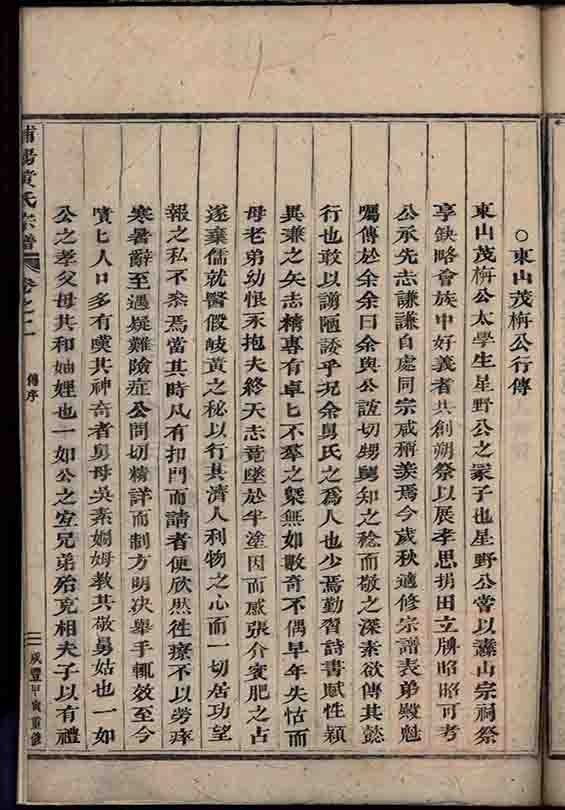 ○東山茂栴公行傳
東山茂栴公太學生星野公之冢子也星野公嘗以壽山宗祠祭
享缺略會族中好義者共創朔祭以展孝思捐田立牌昭昭可考
公承先志謙謙自處同宗咸稱羨焉今歲秋適修宗譜表弟殿魁
囑傳於余余曰余與公誼切甥舅知之稔而敬之深素欲傳其懿
行也敢以謭陋諉乎况余舅氏之爲人也少焉勤習詩書賦性穎
異兼之矢志精專有卓匕不羣之槩無如數奇不偶早年失怙而
母老弟幼恨永抱夫終天志竟墜於半塗因而感張介賓肥之占
遂棄儒就醫假岐黃之秘以行其濟人利物之心而一切居功望
報之私不叅焉當其時凡有扣門而請者便欣然徃療不以勞瘁
寒暑辭至遇疑難險症公問切精詳而制方明决舉手輒效至今
嘖匕人口多有嘆其神奇者舅母吳素嫻姆教其敬舅姑也一如
公之孝父母其和妯娌也一如公之宜兄弟殆克相夫子以有禮
浦陽黃氏宗譜 卷之二 傳序 咸豐甲寅重修